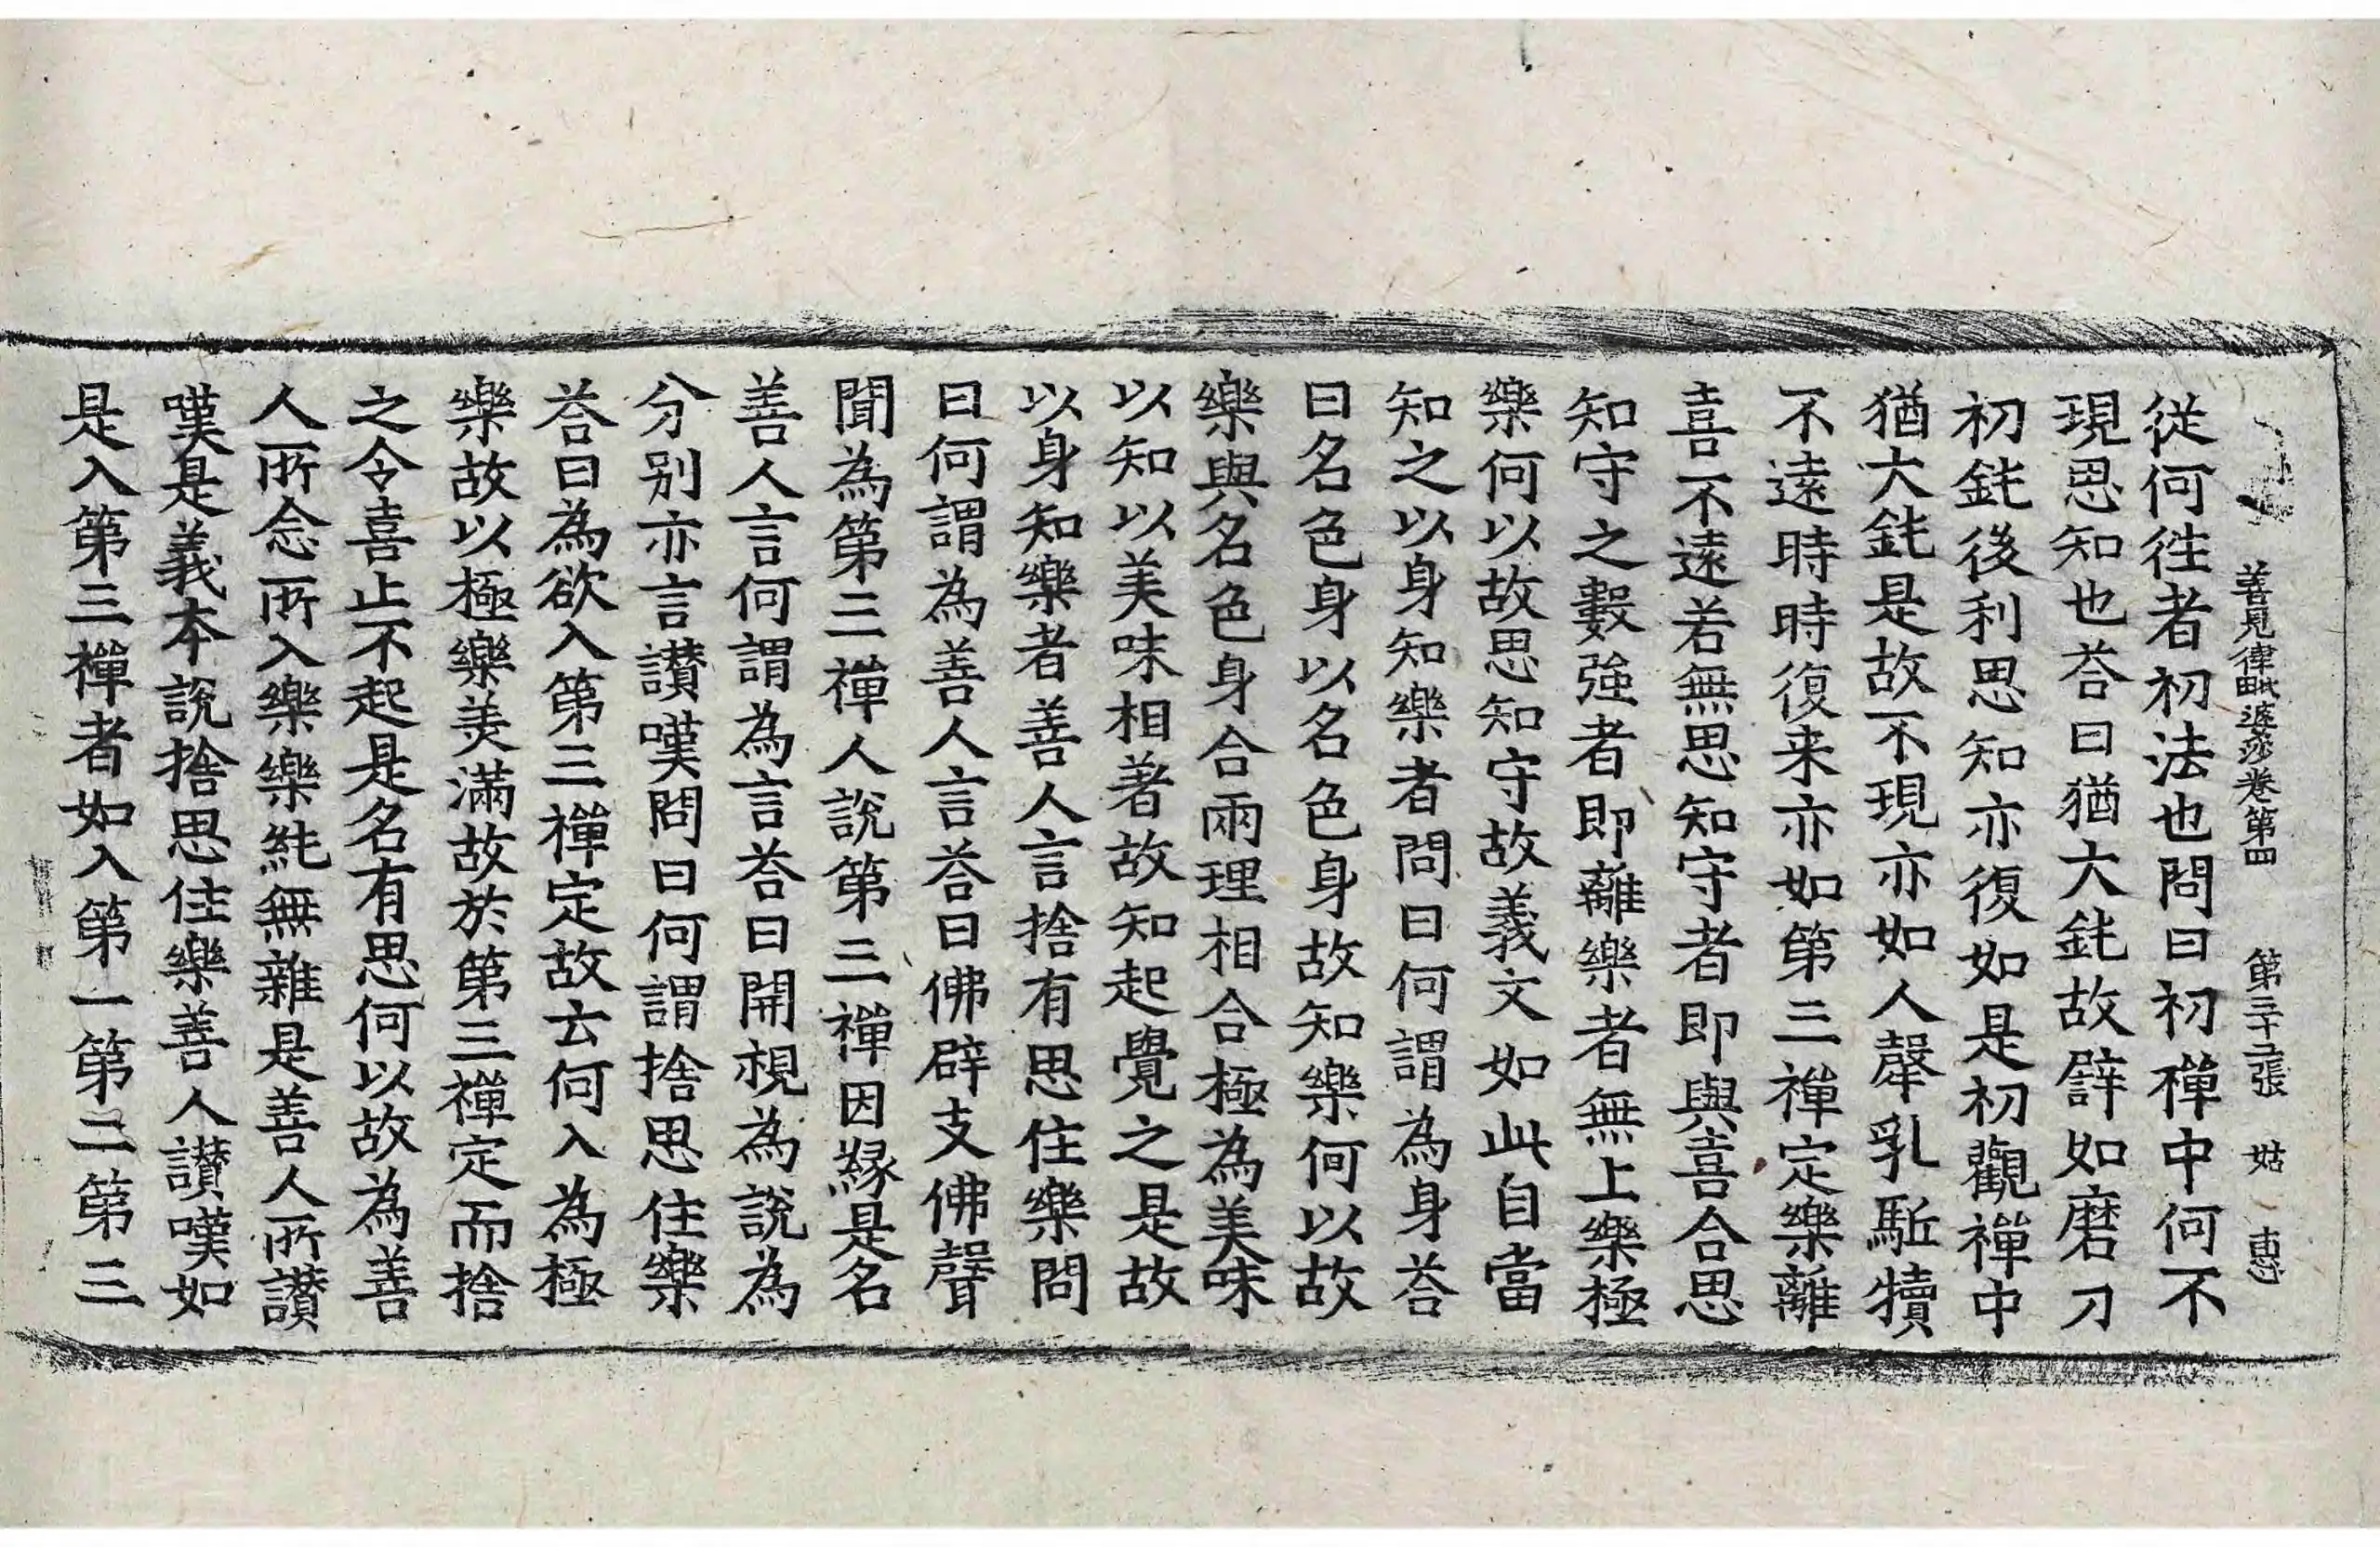 善見律毗婆沙卷第四 第三十二張 姑 惠
從何徃者初法也問曰初禪中何不
現思知也荅曰猶大鈍故譬如磨刀
初鈍後利思知亦復如是初觀禪中
猶大鈍是故不現亦如人𤚲乳駈犢
不遠時時復来亦如第三禪定樂離
喜不遠若無思知守者即與喜合思
知守之數強者即離樂者無上樂極
樂何以故思知守故義文如此自當
知之以身知樂者問曰何謂為身荅
曰名色身以名色身故知樂何以故
樂與名色身合兩理相合極為美味
以知以美味相著故知起覺之是故
以身知樂者善人言捨有思住樂問
曰何謂為善人言荅曰佛辟支佛聲
聞為第三禪人說第三禪因緣是名
善人言何謂為言荅曰開視為說為
分別亦言讃嘆問曰何謂捨思住樂
荅曰為欲入第三禪定故去何入為極
樂故以極樂美滿故於第三禪定而捨
之令喜止不起是名有思何以故為善
人所念所入樂樂純無雜是善人所讃
嘆是義本說捨思住樂善人讃嘆如
是入第三禪者如入第一第二第三